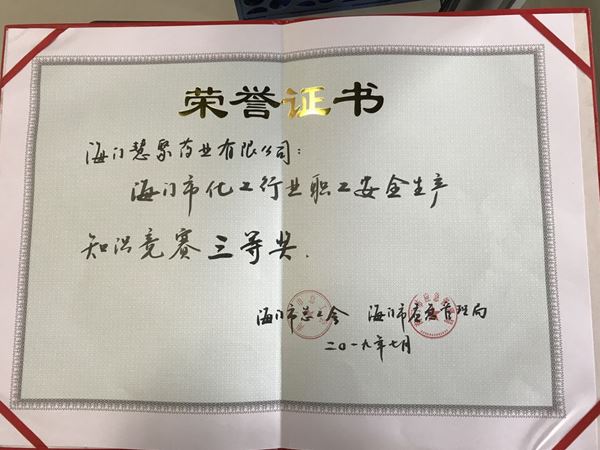 荣誉证书
海门慧聚药业有限公司：
海门市化工行业职工安全生产
知识竞赛三等奖.
海门市总工会 海门市应急管理局
二〇一九年七月